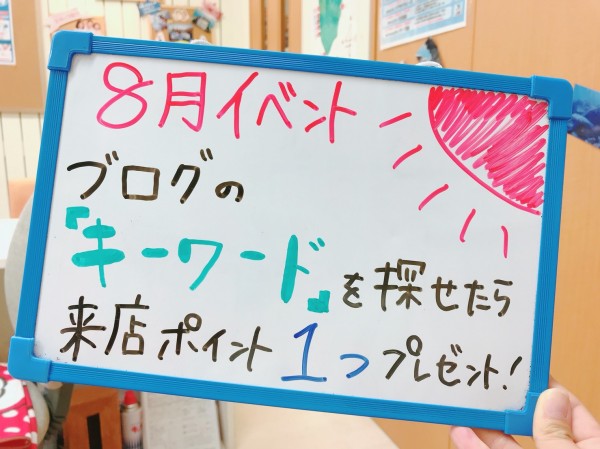 8月イベント
ブログの
『キーワード』を探せたら
来店ポイント1つプレゼント!